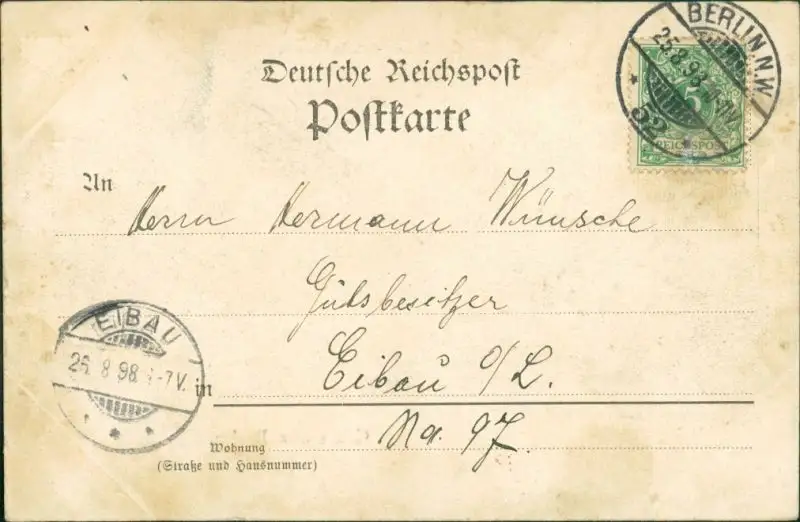 BERLIN N.W.
25.8.98
52
5
REICHSPOST
Deutsche Reichspost
Postkarte
An
Herrn Hermann Wünsche
Gutsbesitzer
EIBAU
8 98 -7V.
in Eibau o/L.
No. 97.
Wohnung
(Straße und Hausnummer)